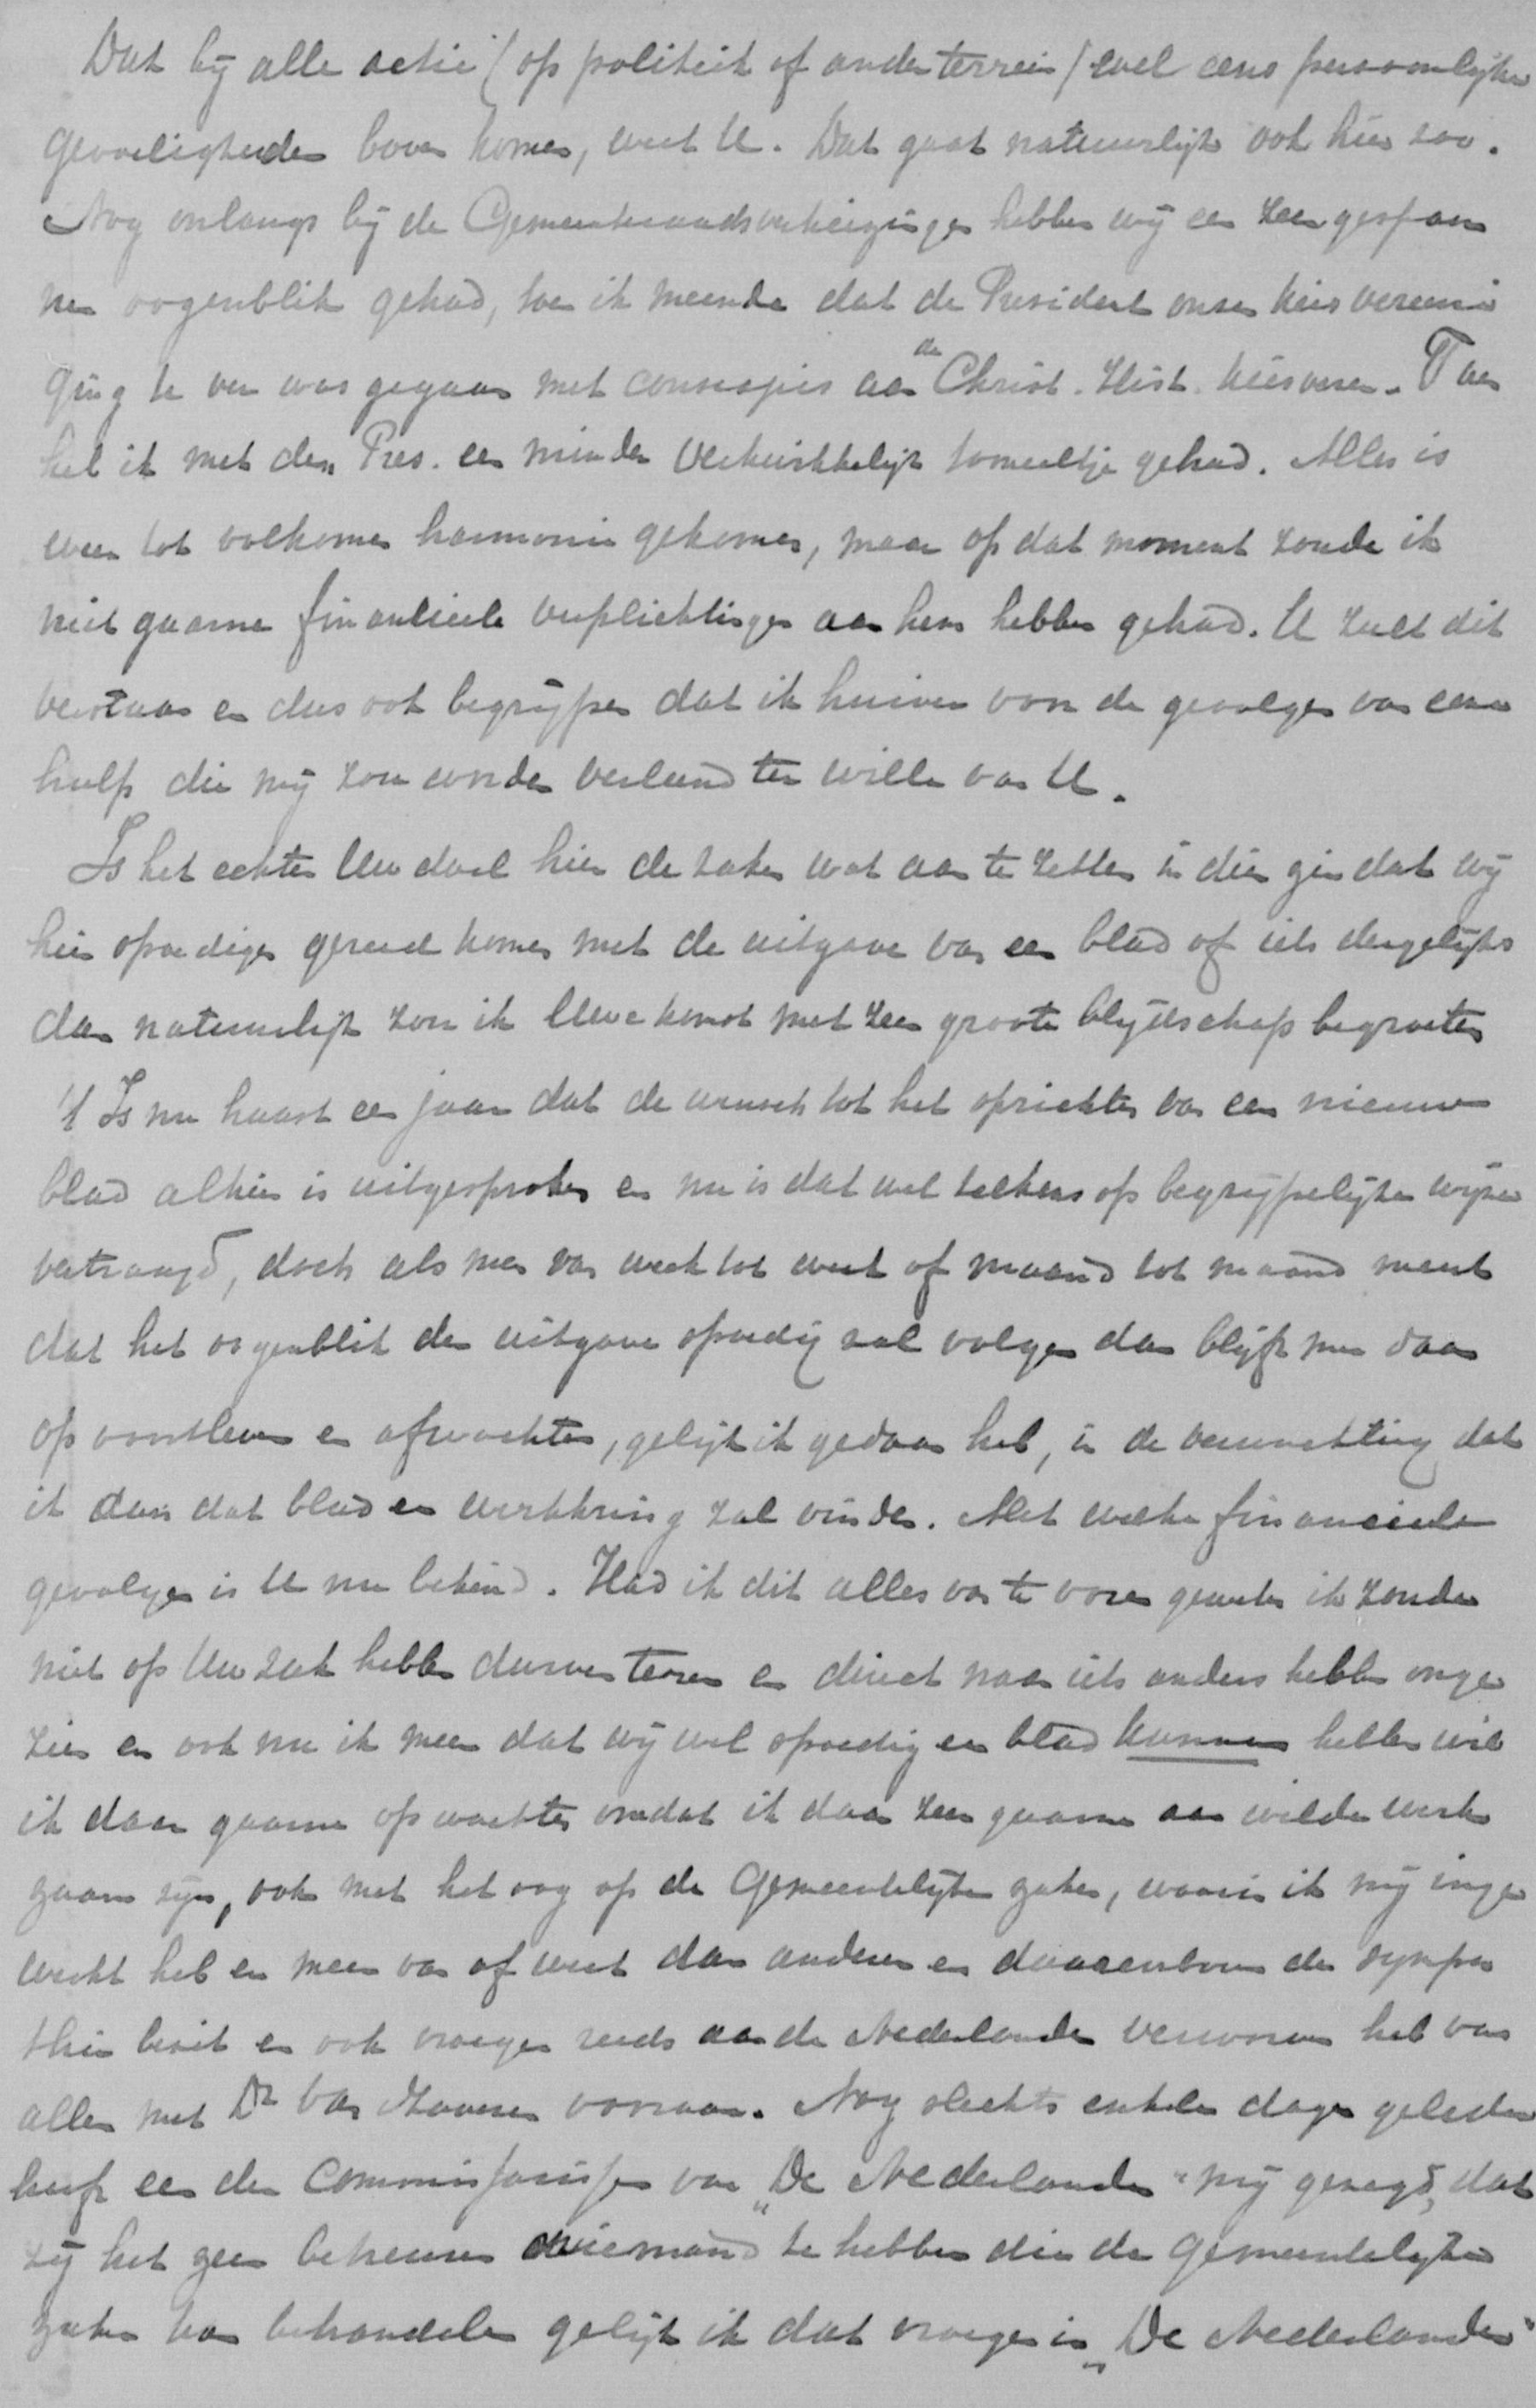 Dat bij alle actie (op politiek of ander terrein) wel eens persoonlijke
gevoeligheden boven komen, weet U. Dat gaat natuurlijk ook hier zoo.
Nog onlangs bij de Gemeenteraadsverkiezingen hebben wij een zeer gespan
nen oogenblik gehad, toen ik meende dat de President onzer kiesvereeni
ging te ver was gegaan met concessies aan de Christ. Hist. kiesveren. Toen
heb ik met den Pres. een minder verkwikkelijk tooneeltje gehad. Alles is
weer tot volkomen harmonie gekomen, maar op dat moment zoude ik
niet gaarne financieele verplichtingen aan hem hebben gehad. U zult dit
verstaan en dus ook begrijpen dat ik huiver voor de gevolgen van eene
hulp die mij zou worden verleend ter wille van U.
Is het echter Uw doel hier de zaken wat aan te zetten in dien zin dat wij
hier spoediger gereed komen met de uitgave van een blad of iets dergelijks
dan natuurlijk zou ik Uwe komst met zeer groote blijdschap begroeten
't Is nu haast een jaar dat de wensch tot het oprichten van een nieuw
blad alhier is uitgesproken en nu is dat wel telkens op begrijpelijke wijze
vertraagd, doch als men van week tot week of maand tot maand meent
dat het oogenblik der uitgave spoedig zal volgen dan blijft men daar
op voortleven en afwachten, gelijk ik gedaan heb, in de verwachting dat
ik dan dat blad en werkkring zal vinden. Met welke financieele
gevolgen is U nu bekend. Had ik dit alles van te voren geweten ik zoude
niet op Uw zak hebben durven teren en direct naar iets anders hebben omge
zien en ook nu ik meen dat wij wel spoedig een blad kunnen hebben wil
ik daar gaarne op wachten omdat ik daar zeer gaarne aan wilde werk
zaam zijn, ook met het oog op de Gemeentelijke zaken, waarin ik mij inge
werkt heb en meer van af weet dan anderen en daarenboven de sympa
thie bezit en ook vroeger reeds aan de Nederlander verworven heb van
allen met Dr van vooraan. Nog slechts enkele dagen geleden
heeft een der Commissarissen van „De Nederlander" mij gezegd, dat
zij het zeer betreuren niemand te hebben die de Gemeentelijke
zaken kan behandelen gelijk ik dat vroeger in „De Nederlander"